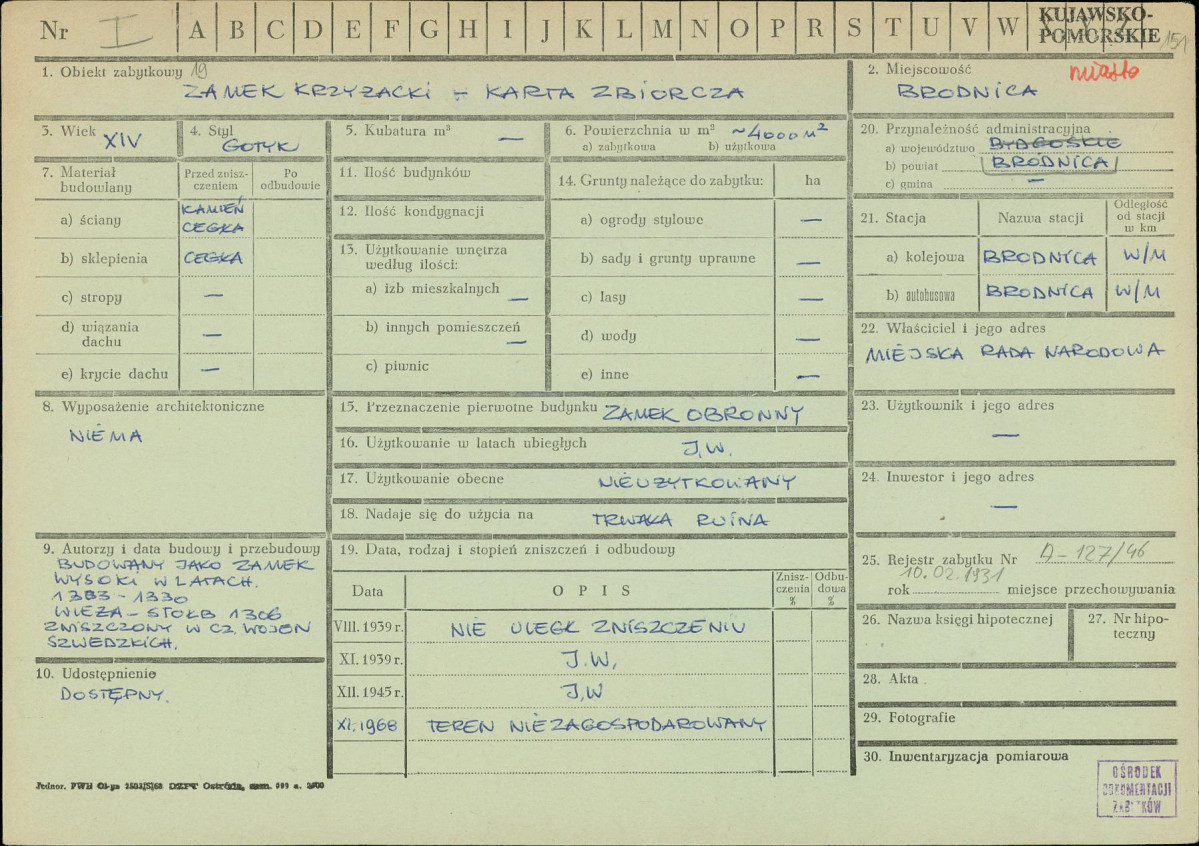 Nr I A B C D E F G H I J K L M N O P R S T U V W X Y Z
KUJAWSKO-
POMORSKIE
151
1. Obiekt zabytkowy 19
ZAMEK KRZYŻACKI – KARTA ZBIORCZA
2. Miejscowość miasto
BRODNICA
3. Wiek XIV
4. Styl
GOTYK
5. Kubatura m³ —
6. Powierzchnia w m² ~4000 M²
a) zabytkowa b) użytkowa
7. Materiał budowlany
Przed zniszczeniem
Po odbudowie
a) ściany KAMIEŃ
CEGŁA
b) sklepienia CEGŁA
c) stropy —
d) wiązania dachu —
e) krycie dachu —
8. Wyposażenie architektoniczne
NIEMA
9. Autorzy i data budowy i przebudowy
BUDOWANY JAKO ZAMEK
WYSOKI W LATACH.
1303 - 1330
WIEŻA – STOŁB 1306
ZNISZCZONY W CZ. WOJEN
SZWEDZKICH.
10. Udostępnienie
DOSTĘPNY.
11. Ilość budynków
12. Ilość kondygnacji
13. Użytkowanie wnętrza
według ilości:
a) izb mieszkalnych —
b) innych pomieszczeń —
c) piwnic
14. Grunty należące do zabytku: ha
a) ogrody stylowe —
b) sady i grunty uprawne —
c) lasy —
d) wody —
e) inne —
15. Przeznaczenie pierwotne budynku ZAMEK OBRONNY
16. Użytkowanie w latach ubiegłych J.W.
17. Użytkowanie obecne NIEUŻYTKOWANY
18. Nadaje się do użycia na TRWAŁA RUINA
19. Data, rodzaj i stopień zniszczeń i odbudowy
Data OPIS Zniszczenia % Odbudowa %
VIII.1939 r. NIE ULEGŁ ZNISZCZENIU
XI.1939 r. J.W.
XII.1945 r. J.W
XI.1968 TEREN NIEZAGOSPODAROWANY
20. Przynależność administracyjna
a) województwo BYDGOSKIE
b) powiat BRODNICA
c) gmina —
21. Stacja Nazwa stacji Odległość od stacji w km
a) kolejowa BRODNICA W/M
b) autobusowa BRODNICA W/M
22. Właściciel i jego adres
MIEJSKA RADA NARODOWA
23. Użytkownik i jego adres
—
24. Inwestor i jego adres
—
25. Rejestr zabytku Nr A-127/46
10.02.1931
rok miejsce przechowywania
26. Nazwa księgi hipotecznej
27. Nr hipoteczny
28. Akta
29. Fotografie
30. Inwentaryzacja pomiarowa
OŚRODEK
DOKUMENTACJI
ZABYTKÓW